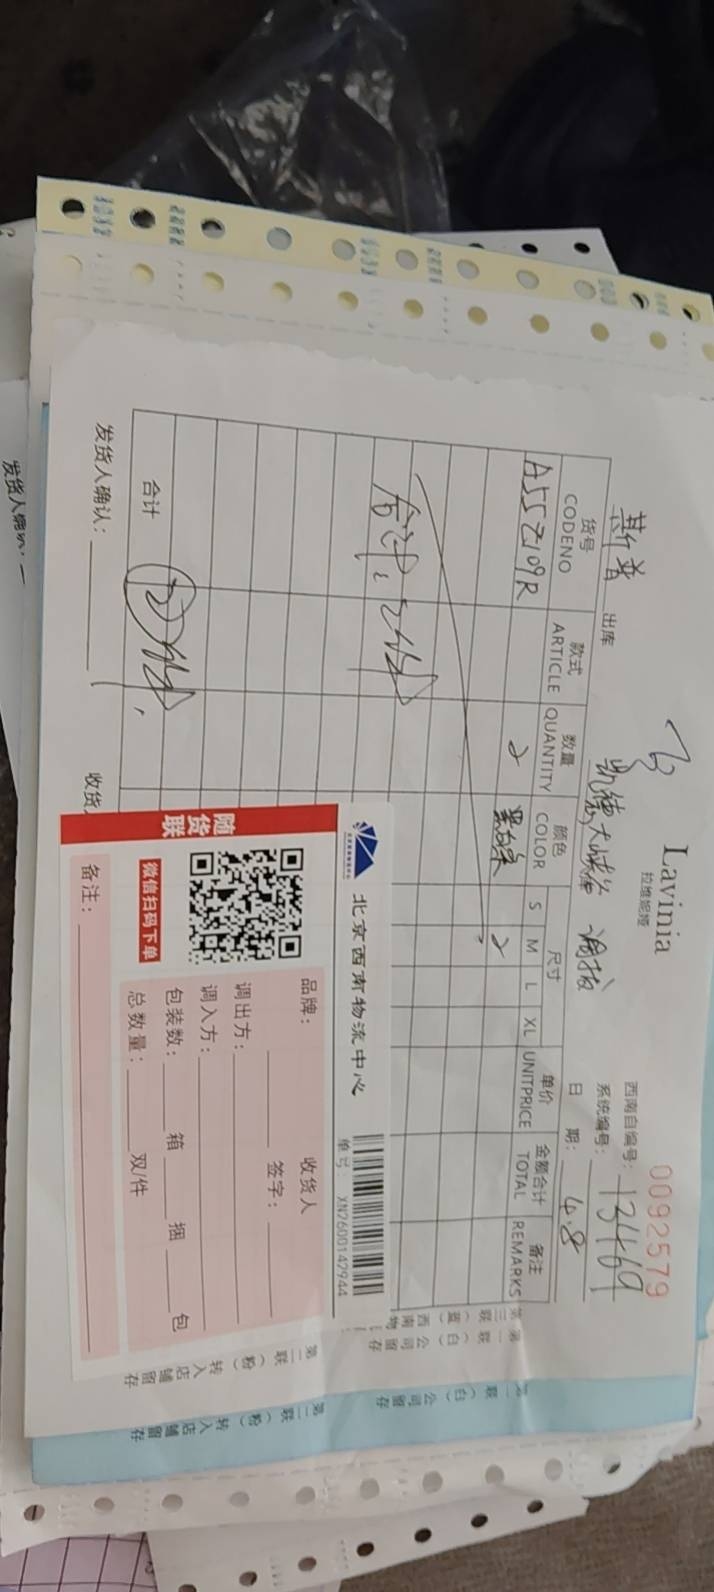 Lavinia
拉维妮娅
0092579
西南自编号: 13469
系统编号:
斯普 出库 凯德大峡谷 调拨 日 期: 4.8
货号 款式 数量 颜色 尺寸 单价 金额合计 备注
CODENO ARTICLE QUANTITY COLOR S M L XL UNITPRICE TOTAL REMARKS
2 2
合计: 2件
合计 2件
发货人确认:
收货
第一联(白)公司留存
第二联(粉)转入店铺留存
北京西南物流中心
单号: XN7600142944
随货联
微信扫码下单
品牌:
收货人
签字:
调出方:
调入方:
包装数: 箱 捆 包
总数量: 双/件
备注:
第一联(白)公司留存
第二联(粉)转入店铺留存
发货人确认: